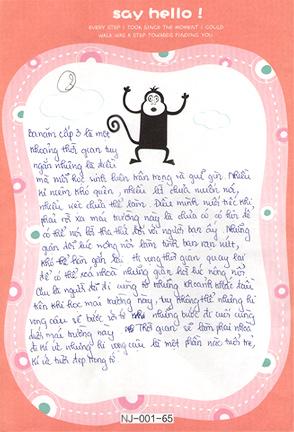 say hello !
EVERY STEP I TOOK SINCE THE MOMENT I COULD
WALK WAS A STEP TOWARDS FINDING YOU
Ba năm cấp 3 là một
khoảng thời gian tuy
ngắn nhưng là điều
mà mỗi học sinh luôn trân trọng và giữ gìn. Nhiều
kỉ niệm khó quên, nhiều lời chưa muốn nói,
nhiều việc chưa thể làm. Điều mình nuối tiếc khi
phải rời xa mái trường này là chưa có cơ hội để
có thể nói lời tha thứ đối với người bạn ấy. Những
giận dỗi lúc nóng nổi làm tình bạn rạn nứt,
khó thể hàn gắn lại. Hi vọng thời gian quay lại
để có thể xoá nhoà những giận hờn lúc nóng nổi.
là người đã đi cùng tớ những khoảnh khắc đầu
tiên khi học mái trường này, tuy không thể nhưng hi
vọng cậu sẽ bước với tớ những bước đi cuối cùng
dưới mái trường này. Thời gian sẽ làm phai nhoà
đi kí ức nhưng hi vọng cậu là một phần nào tuổi trẻ,
kí ức tươi đẹp trong tớ.
NJ-001-65